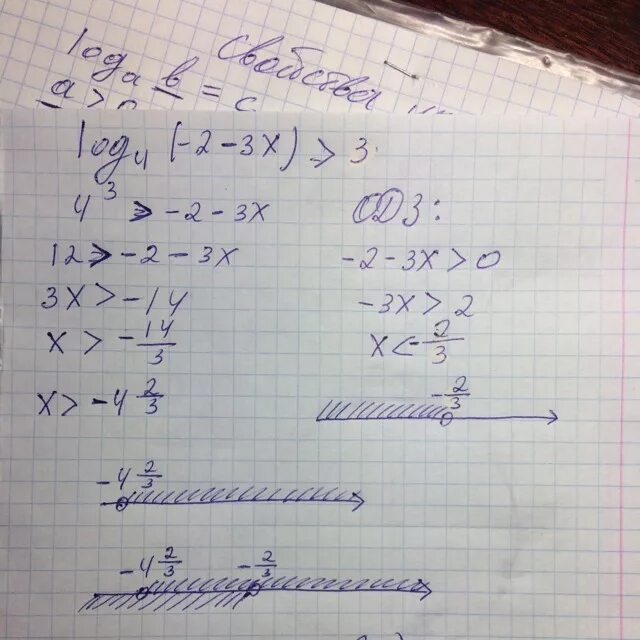 свойства
log_a b = c
a > 0
log₄ (-2 - 3x) > 3
4³ > -2 - 3x
12 > -2 - 3x
3x > -14
x > -14/3
x > -4 2/3
ОДЗ:
-2 - 3x > 0
-3x > 2
x < -2/3
-2/3
-4 2/3
-4 2/3 -2/3